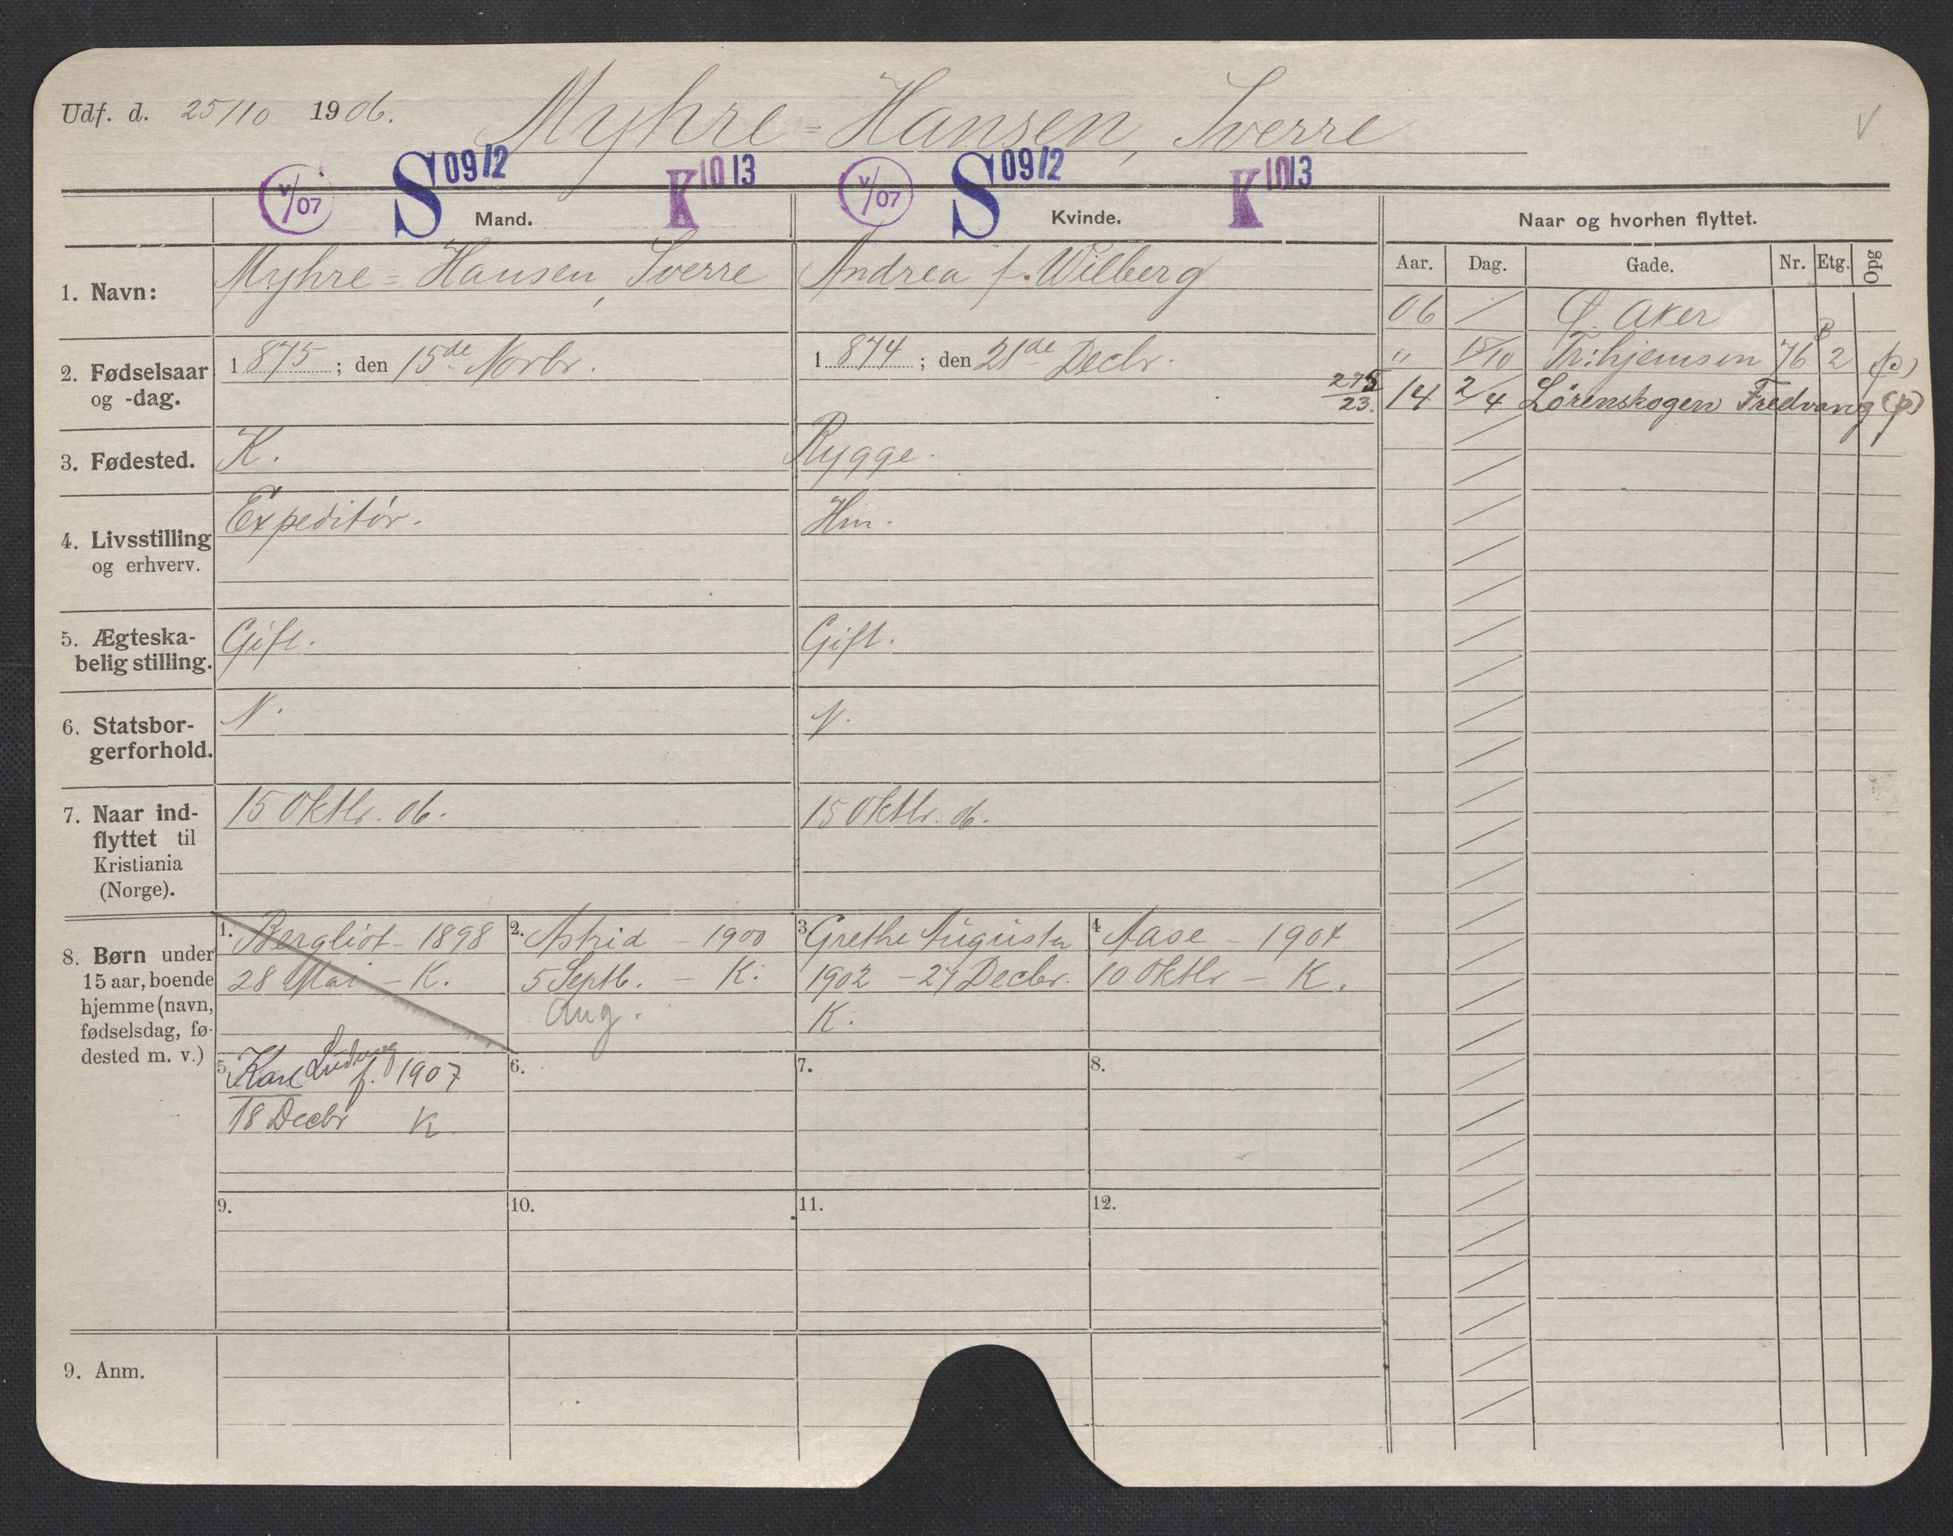 Udf. d. 25/10 1906. Myhre-Hansen, Sverre
V/07 S 09/2 K 10 13 V/07 S 09/2 K 10 13
Mand. Kvinde. Naar og hvorhen flyttet.
Aar. Dag. Gade. Nr. Etg. Opg
1. Navn: Myhre-Hansen, Sverre Andrea f. Wilberg
06 / Ø. Aker
" 15/10 Tr:hjemsvn 76 B 2 (p)
275/23. 14 2/4 Lørenskogen Fredvang (p)
2. Fødselsaar og -dag. 1875; den 15de Novbr. 1874; den 21de Decbr.
3. Fødested. K. Rygge.
4. Livsstilling og erhverv. Expeditør. Hm.
5. Ægteska-
belig stilling. Gift. Gift.
6. Statsbor-
gerforhold. N. N.
7. Naar ind-
flyttet til
Kristiania
(Norge). 15 Oktbr. 06. 15 Oktbr. 06.
8. Børn under
15 aar, boende
hjemme (navn,
fødselsdag, fø-
dested m. v.)
1. Bergliot - 1898
28 Mai - K.
2. Astrid - 1900
5 Septb. - K.
Aug.
3 Grethe Augusta
1902 - 27 Decbr.
K.
4 Aase - 1904
10 Oktbr - K.
5. Karl Ludvig f. 1907
18 Decbr K
6.
7.
8.
9.
10.
11.
12.
9. Anm.